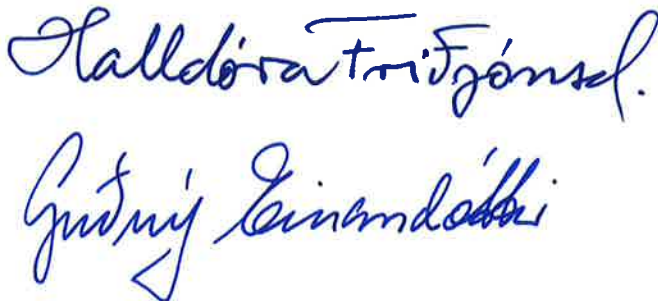 Halldóra Friðjónsd.
Guðný Einarsdóttir